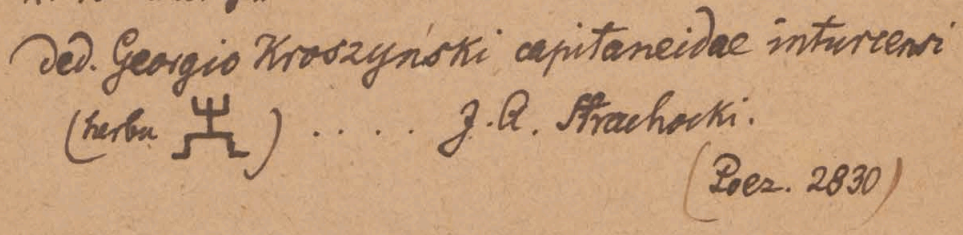 Ded. Georgio Kroszyński capitaneidae inturcensi
(herbu ) . . . . J. A. Strachocki.
(Poez. 2830)